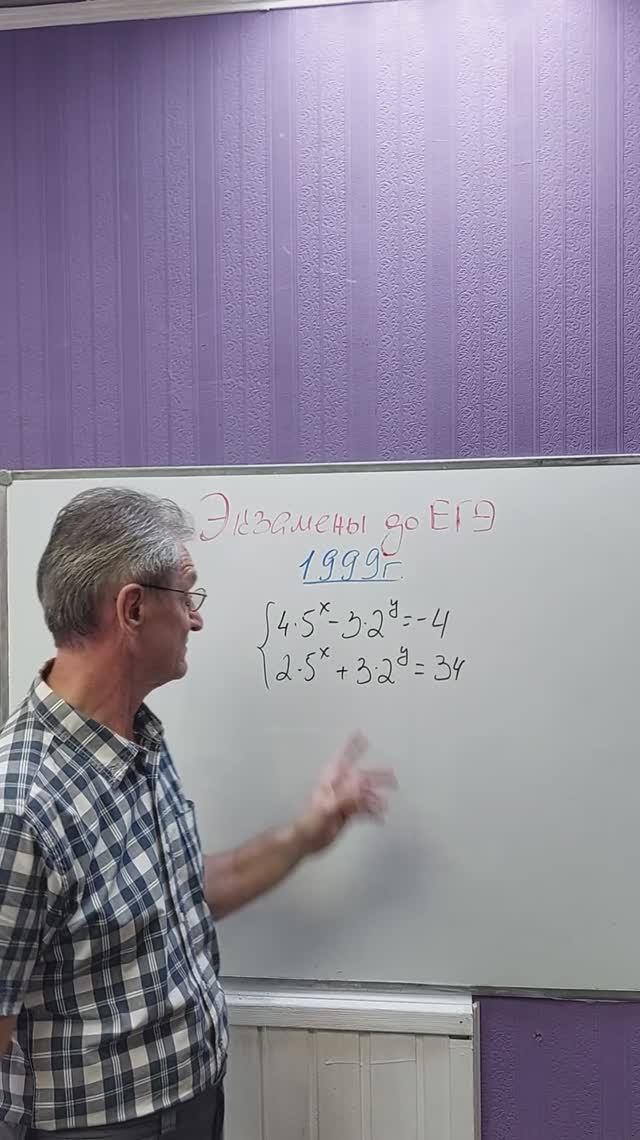 Экзамены до ЕГЭ
1999г.
{4·5^x - 3·2^y = -4
2·5^x + 3·2^y = 34